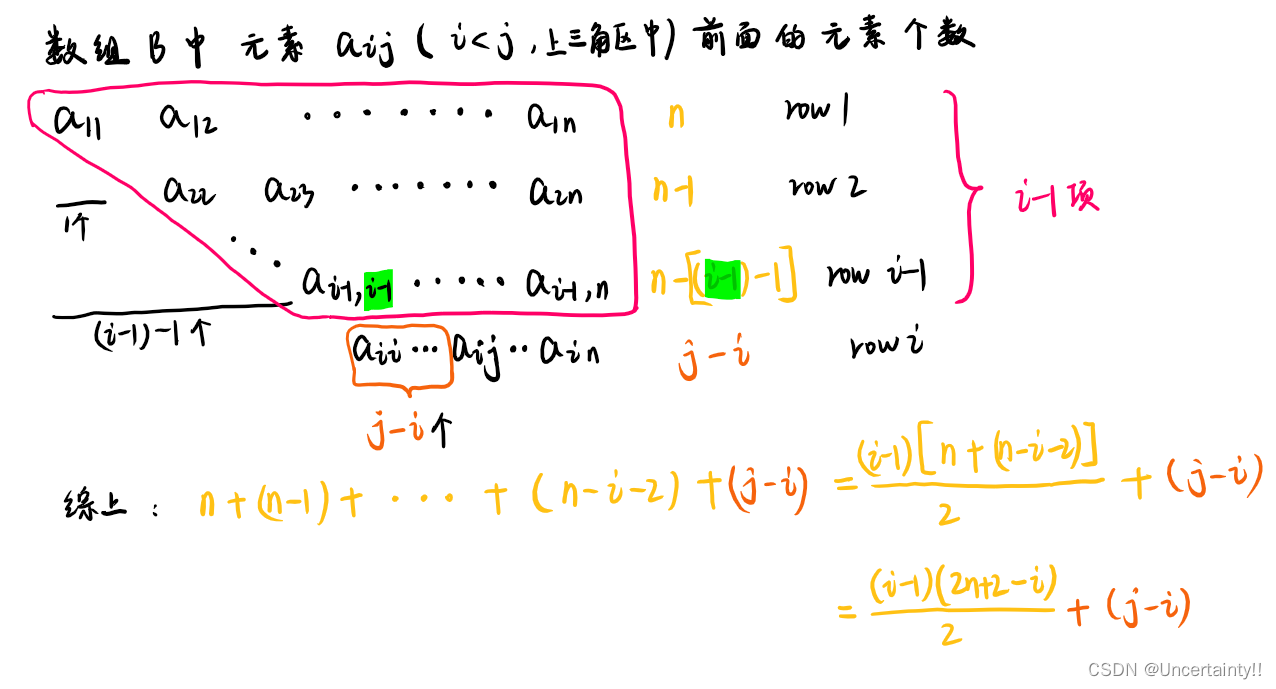 数组 B 中 元素 aij ( i<j , 上三角区中) 前面的元素个数
a11 a12 ······· a1n n row 1
a22 a23 ······· a2n n-1 row 2
1个
i-1 项
ai-1,i-1 ····· ai-1,n n-[(i-1)-1] row i-1
(i-1)-1个
aii··· aij·· ain j-i row i
j-i个
综上: n+(n-1)+ ··· +(n-i-2)+(j-i) = (i-1)[n+(n-i-2)]/2 + (j-i)
= (i-1)(2n+2-i)/2 + (j-i)
CSDN @Uncertainty!!